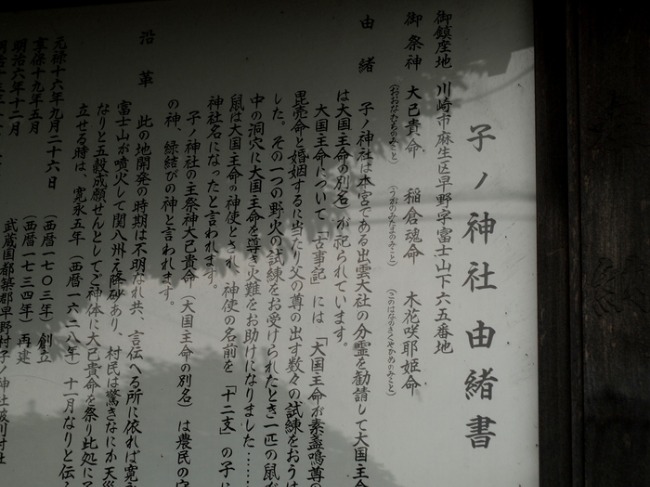 子ノ神社由緒書
御鎮産地　川崎市麻生区早野字富士山下六五番地
御祭神　大己貴命　稲倉魂命　木花咲耶姫命
（おおなむちのみこと）　（うがのみたまのみこと）　（このはなのさくやひめのみこと）
由緒　子ノ神社は本宮である出雲大社の分霊を勧請して大国主命
は大国主命の別名）が祀られています。
大国主命について「古事記」には「大国主命が素盞鳴尊の
毘売命と婚姻するに当たり父の尊の出す数々の試練をおうけ
した。その一つの野火の試練をお受けられたとき一匹の鼠が
中の洞穴に大国主命を導き火難をお助けになりました……
鼠は大国主命の神使とされ、神使の名前を「十二支」の子に
神社名になったと言われます。
子ノ神社の主祭神大己貴命（大国主命の別名）は農民の守
の神、縁結びの神と言われます。
沿革　此の地開発の時期は不明なれ共、言伝へる所に依れば寛永
富士山が噴火して関八州え降砂あり、村民は驚きなにか天災
なりと五穀成願せんとしてご神体に大己貴命を祭り此処に
立せる時は、寛永五年（西暦一六二八年）十一月なりと伝
元禄十六年九月二十六日　（西暦一七〇三年）創立
享保十九年五月　（西暦一七三四年）再建
明治六年十二月　武蔵国都築郡早野村子ノ神社